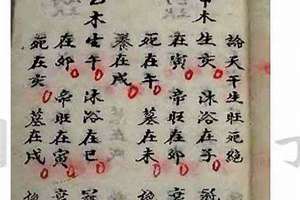 論天干生旺死絕
木
生亥
沐浴在子
在寅
帝旺在卯
死在午
墓在未
墓在戌
乙木
生午
沐浴在巳
在卯
帝旺在寅
死在亥
墓在戌